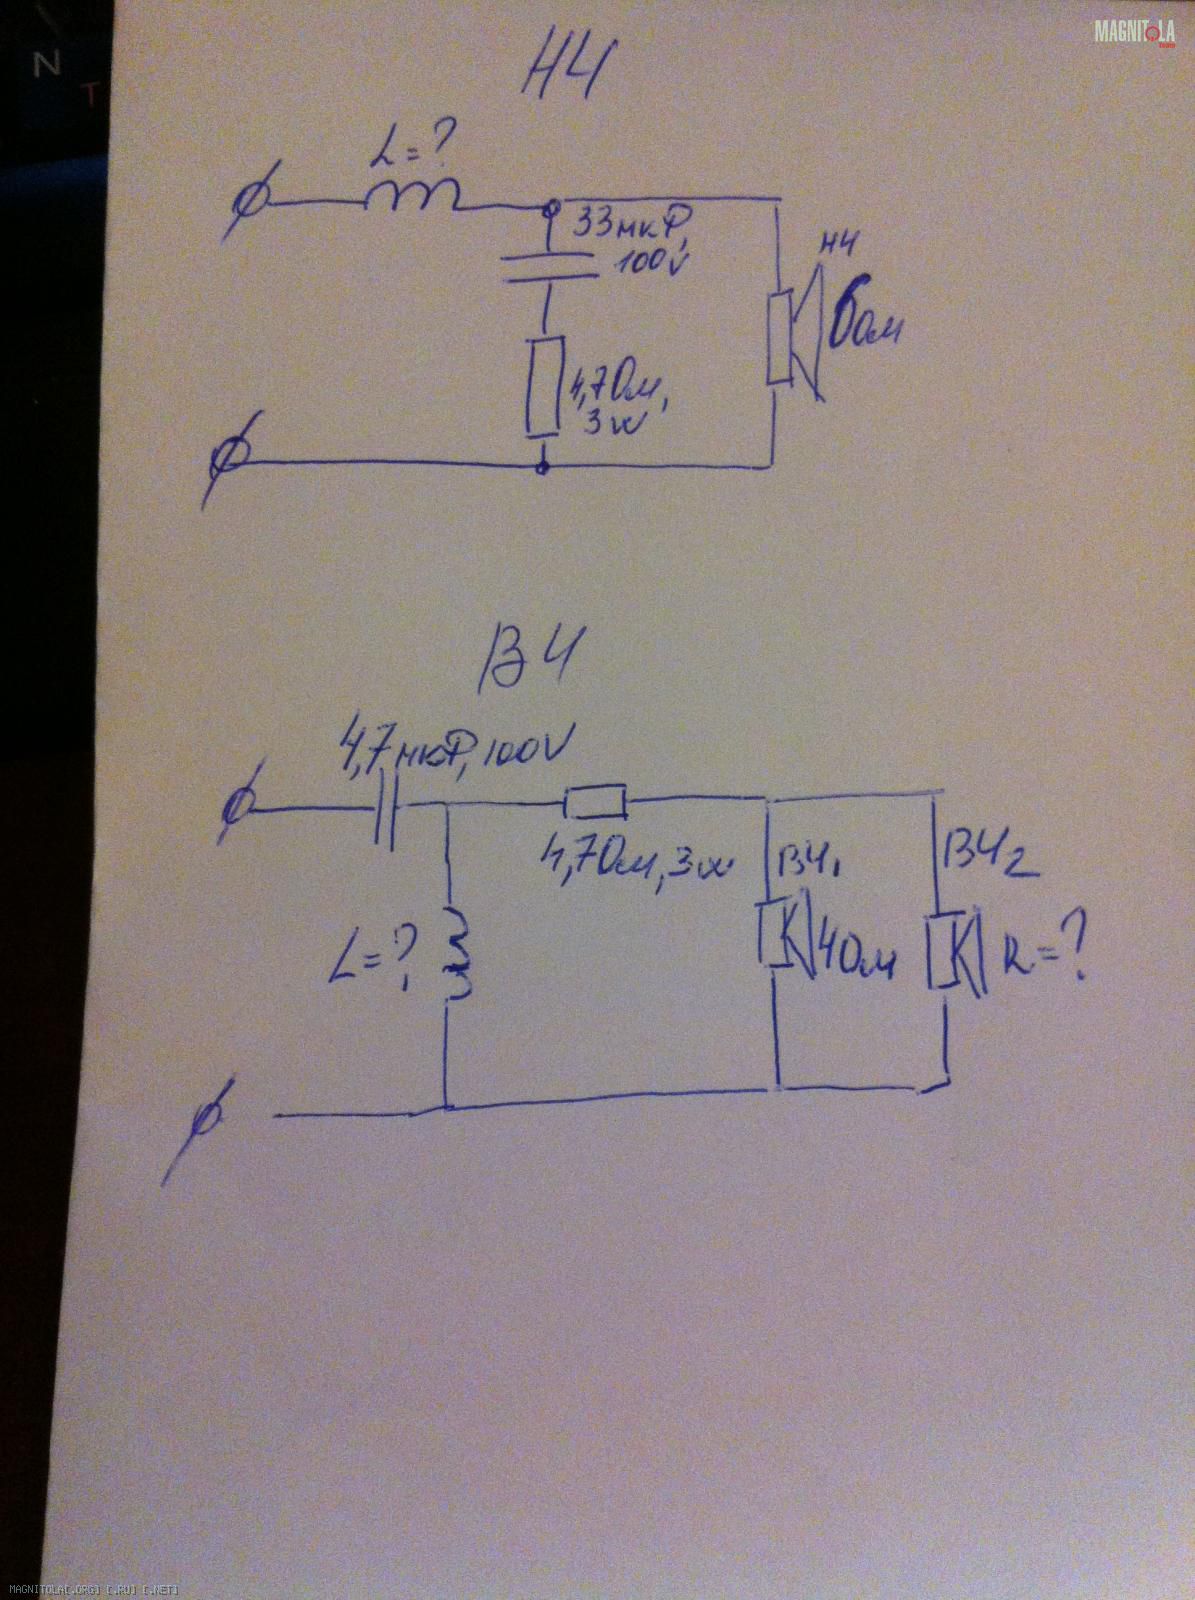 MAGNITOLA
team
N
T
НЧ
L=?
33мкФ,
100V
НЧ
6ом
4,7Ом,
3w
ВЧ
4,7мкФ, 100V
4,7Ом, 3w
ВЧ1
ВЧ2
L=?
4Ом
R=?
MAGNITOLA[.ORG] [.RU] [.NET]